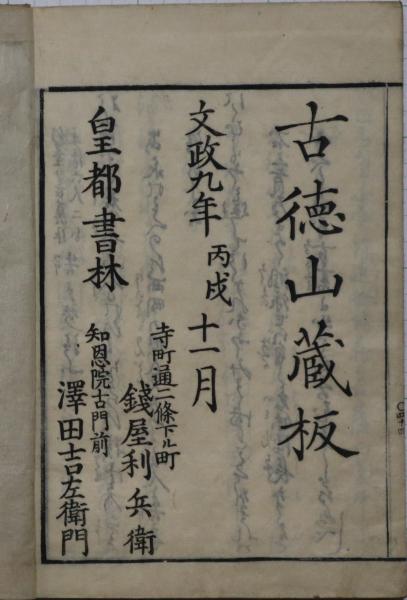 古徳山蔵板
文政九年 丙戌 十一月
皇都書林
寺町通二條下ル町
錢屋利兵衛
知恩院古門前
澤田吉左衛門